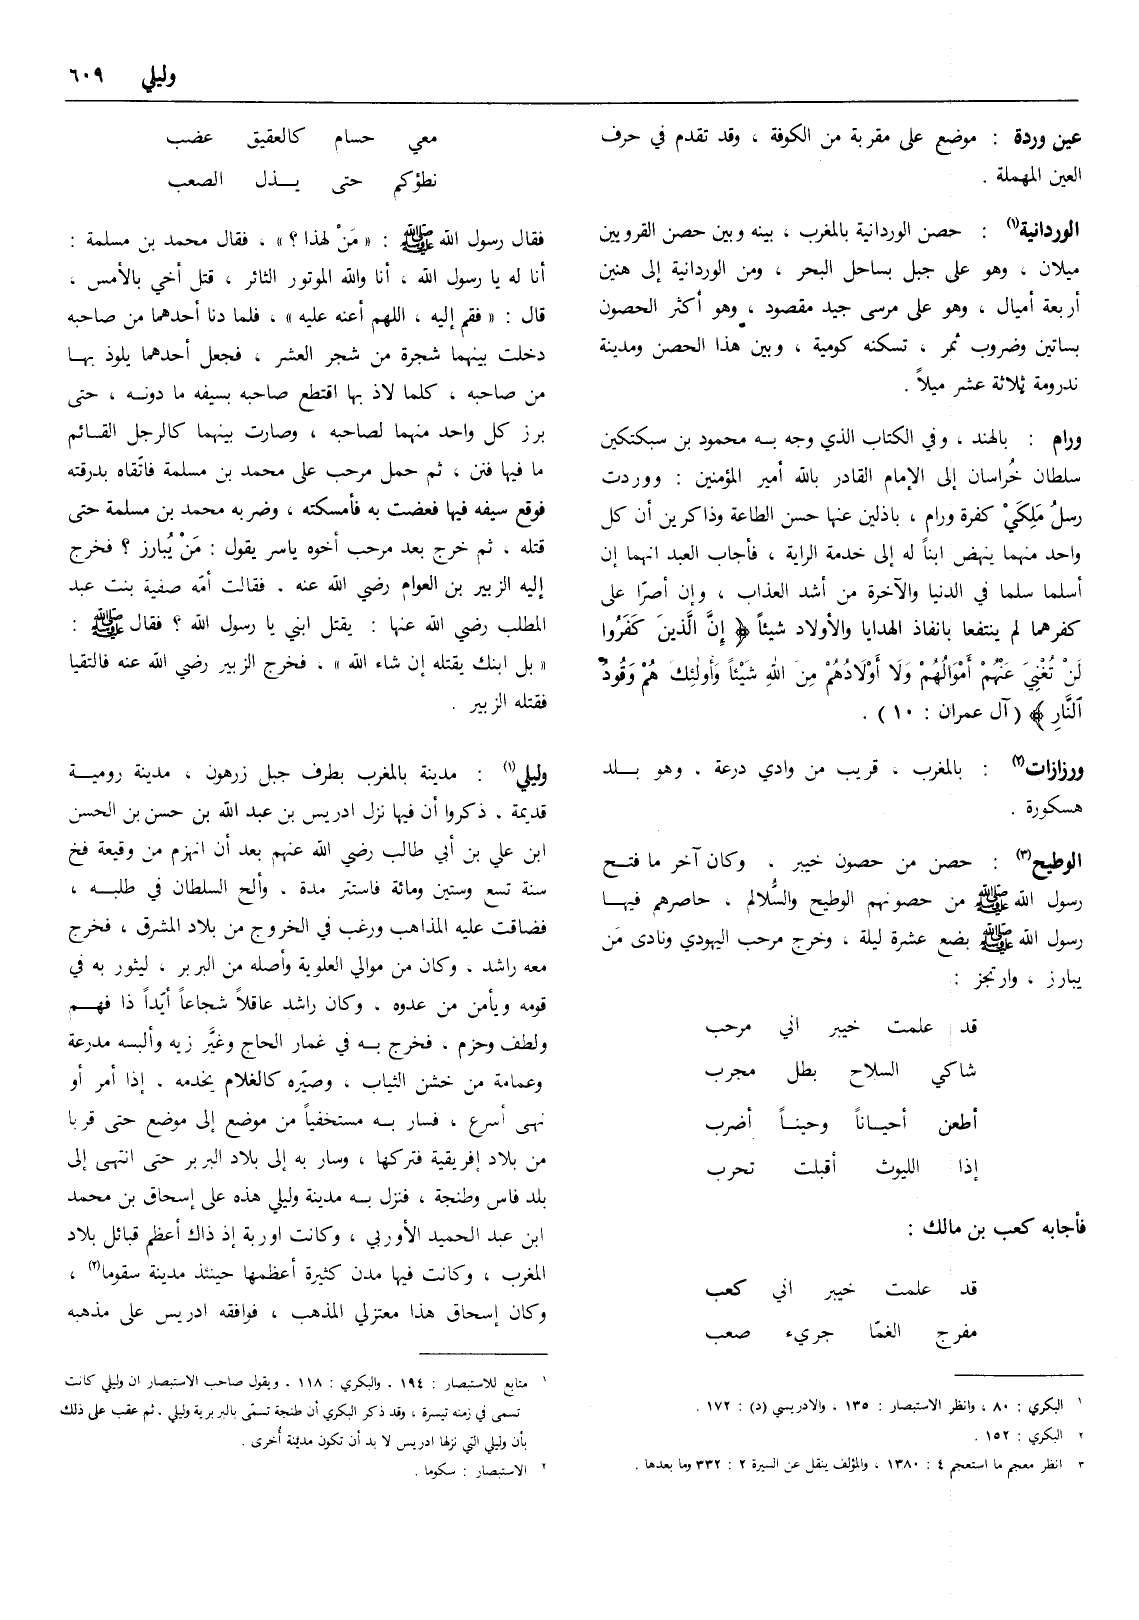 وليلي ٦٠٩
عين وردة : موضع على مقربة من الكوفة ، وقد تقدم في حرف
العين المهملة .
الوردانية(١) : حصن الوردانية بالمغرب ، بينه وبين حصن القرويين
ميلان ، وهو على جبل بساحل البحر ، ومن الوردانية إلى هنين
أربعة أميال ، وهو على مرسى جيد مقصود ، وهو أكثر الحصون
بساتين وضروب ثمر ، تسكنه كومية ، وبين هذا الحصن ومدينة
ندرومة ثلاثة عشر ميلاً .
ورام : بالهند ، وفي الكتاب الذي وجه به محمود بن سبكتكين
سلطان خُراسان إلى الإمام القادر بالله أمير المؤمنين : ووردت
رسلُ مَلِكَيْ كفرة ورام ، باذلين عنها حسن الطاعة وذاكرين أن كل
واحد منهما ينهض ابناً له إلى خدمة الراية ، فأجاب العبد انهما إن
أسلما سلما في الدنيا والآخرة من أشد العذاب ، وإن أصرّا على
كفرهما لم ينتفعا بانفاذ الهدايا والأولاد شيئاً ﴿ إِنَّ الَّذينَ كَفَرُوا
لَنْ تُغْنِيَ عَنْهُمْ أَمْوَالُهُمْ وَلَا أَوْلَادُهُمْ مِنَ اللهِ شَيْئاً وَأُولَئِكَ هُمْ وَقُودُ
النَّارِ ﴾ ( آل عمران : ١٠ ) .
ورزازات(٢) : بالمغرب ، قريب من وادي درعة . وهو بلد
هسكورة .
الوطيح(٣) : حصن من حصون خيبر . وكان آخر ما فتح
رسول الله ﷺ من حصونهم الوطيح والسُّلالم ، حاصرهم فيها
رسول الله ﷺ بضع عشرة ليلة ، وخرج مرحب اليهودي ونادى مَن
يبارز ، وارتجز :
قد علمت خيبر اني مرحب
شاكي السلاح بطل مجرب
أطعن أحياناً وحيناً أضرب
إذا الليوث أقبلت تحرب
فأجابه كعب بن مالك :
قد علمت خيبر اني كعب
مفرج الغمّا جريء صعب
١ البكري : ٨٠ ، وانظر الاستبصار : ١٣٥ ، والادريسي (د) : ١٧٢ .
٢ البكري : ١٥٢ .
٣ انظر معجم ما استعجم ٤ : ١٣٨٠ ، والمؤلف ينقل عن السيرة ٢ : ٣٣٢ وما بعدها .
معي حسام كالعقيق عضب
نطؤكم حتى يذل الصعب
فقال رسول الله ﷺ : « مَنْ لهذا ؟ » ، فقال محمد بن مسلمة :
أنا له يا رسول الله ، أنا والله الموتور الثائر ، قتل أخي بالأمس ،
قال : « فقم إليه ، اللهم أعنه عليه » ، فلما دنا أحدهما من صاحبه
دخلت بينهما شجرة من شجر العشر ، فجعل أحدهما يلوذ بها
من صاحبه ، كلما لاذ بها اقتطع صاحبه بسيفه ما دونه ، حتى
برز كل واحد منهما لصاحبه ، وصارت بينهما كالرجل القائم
ما فيها فنن ، ثم حمل مرحب على محمد بن مسلمة فاتّقاه بدرقته
فوقع سيفه فيها فعضت به فأمسكته ، وضربه محمد بن مسلمة حتى
قتله ، ثم خرج بعد مرحب أخوه ياسر يقول : مَنْ يُبارز ؟ فخرج
إليه الزبير بن العوام رضي الله عنه . فقالت أمّه صفية بنت عبد
المطلب رضي الله عنها : يقتل ابني يا رسول الله ؟ فقال ﷺ :
« بل ابنك يقتله إن شاء الله » ، فخرج الزبير رضي الله عنه فالتقيا
فقتله الزبير .
وليلي(١) : مدينة بالمغرب بطرف جبل زرهون ، مدينة رومية
قديمة . ذكروا أن فيها نزل ادريس بن عبد الله بن حسن بن الحسن
ابن علي بن أبي طالب رضي الله عنهم بعد أن انهزم من وقيعة فخ
سنة تسع وستين ومائة فاستتر مدة . وألح السلطان في طلبه ،
فضاقت عليه المذاهب ورغب في الخروج من بلاد المشرق ، فخرج
معه راشد ، وكان من موالي العلوية وأصله من البربر ، ليثور به في
قومه ويأمن من عدوه . وكان راشد عاقلاً شجاعاً أيّداً ذا فهم
ولطف وحزم . فخرج به في غمار الحاج وغيَّر زيه وألبسه مدرعة
وعمامة من خشن الثياب ، وصيّره كالغلام يخدمه . إذا أمر أو
نهى أسرع ، فسار به مستخفياً من موضع إلى موضع حتى قربا
من بلاد إفريقية فتركها ، وسار به إلى بلاد البربر حتى انتهى إلى
بلد فاس وطنجة ، فنزل به مدينة وليلي هذه على إسحاق بن محمد
ابن عبد الحميد الأوربي ، وكانت اوربة إذ ذاك أعظم قبائل بلاد
المغرب ، وكانت فيها مدن كثيرة أعظمها حينئذ مدينة سقوما(٢) ،
وكان إسحاق هذا معتزلي المذهب ، فوافقه ادريس على مذهبه
١ متابع للاستبصار : ١٩٤ . والبكري : ١١٨ . ويقول صاحب الاستبصار ان وليلي كانت
تسمى في زمنه تيسرة ، وقد ذكر البكري أن طنجة تسمّى بالبربرية وليلي . ثم عقب على ذلك
بأن وليلي التي نزلها ادريس لا بد أن تكون مدينة أُخرى .
٢ الاستبصار : سكوما .